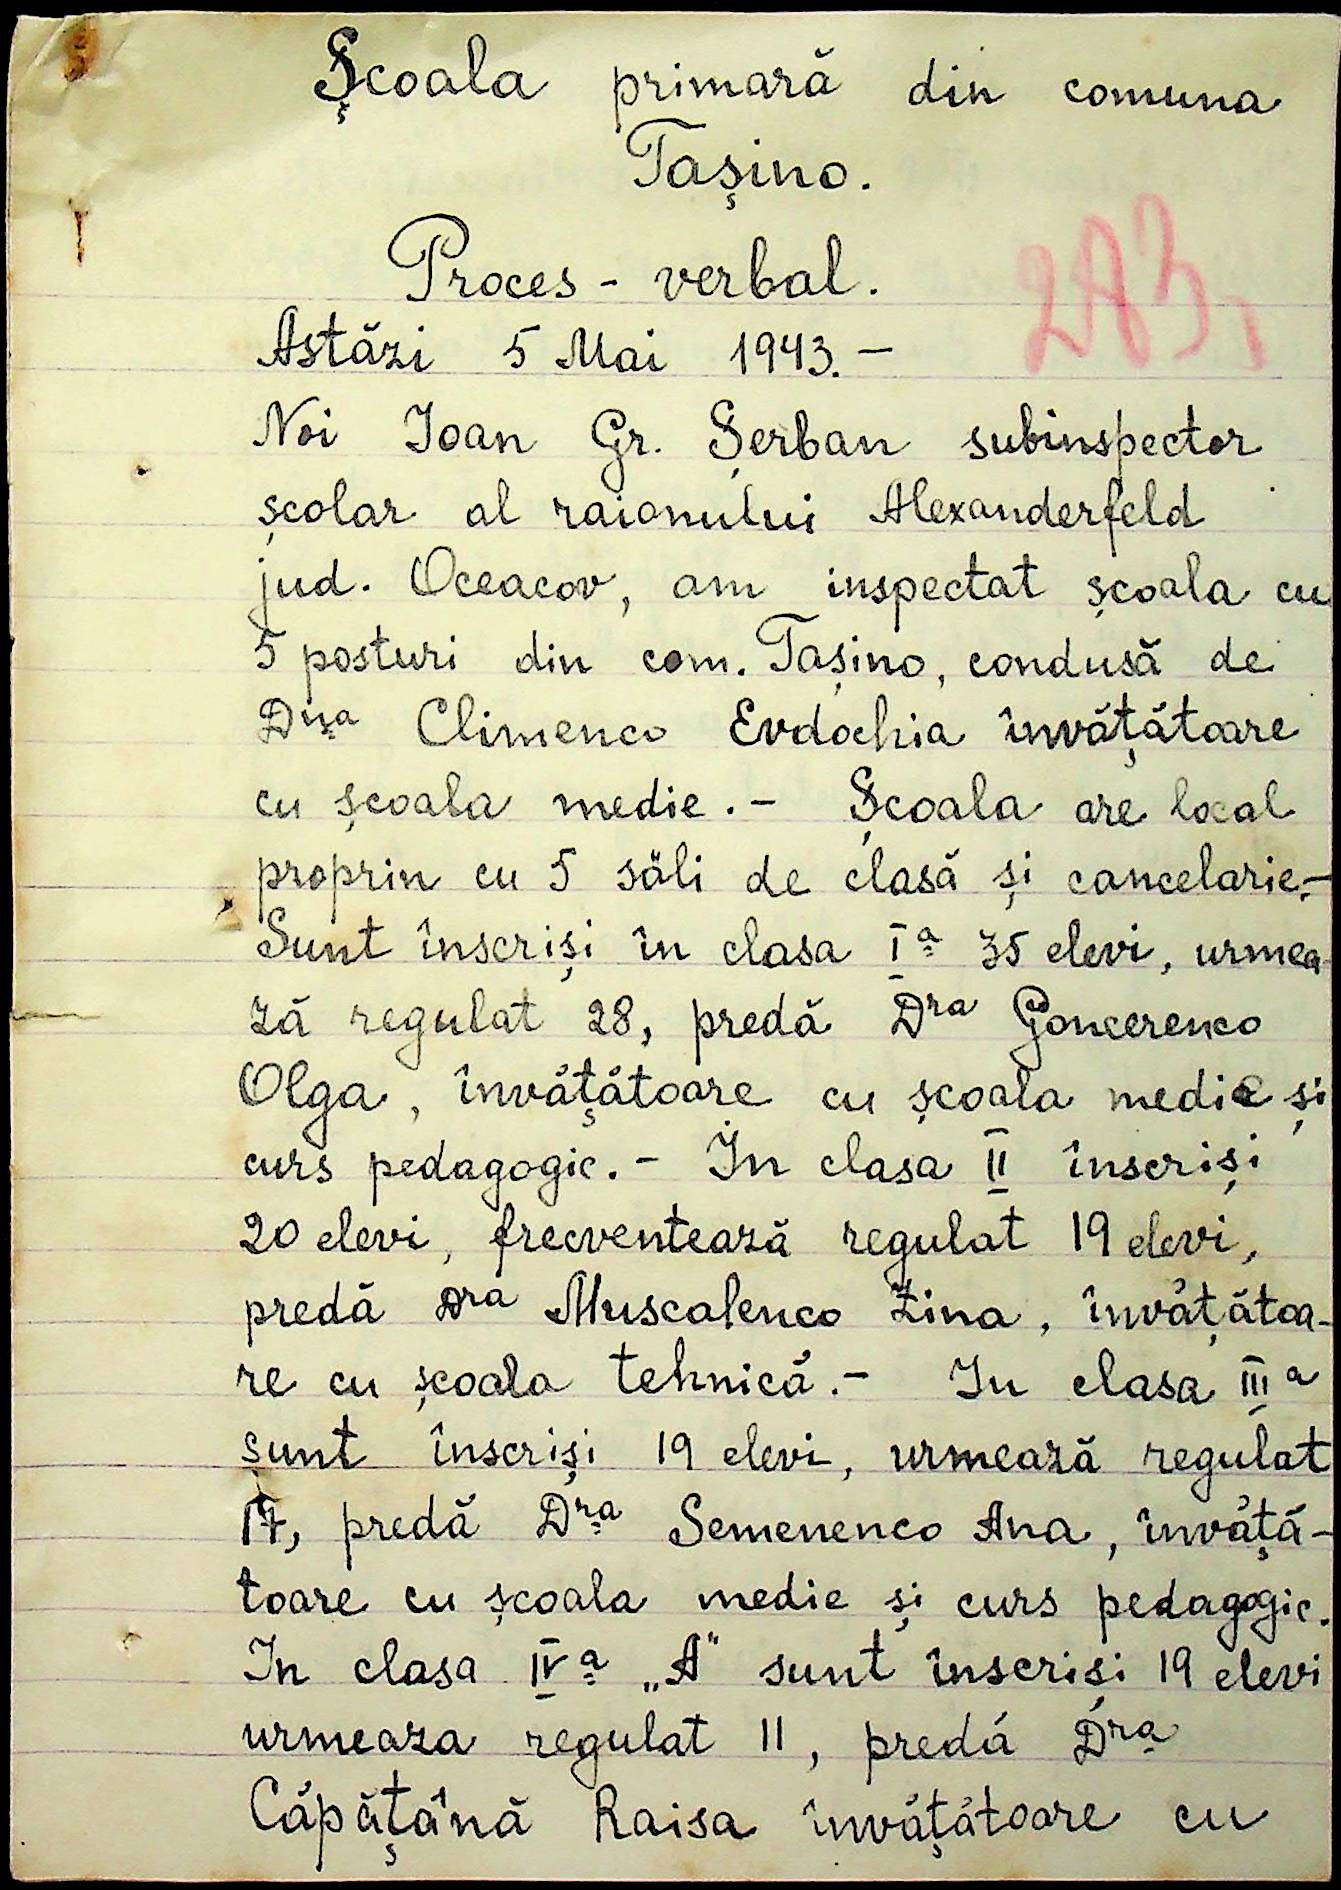 Școala primară din comuna
Tașino.
Proces - verbal.
283,
Astăzi 5 Mai 1943. –
Noi Ioan Gr. Șerban subinspector
școlar al raionului Alexanderfeld
jud. Oceacov, am inspectat școala cu
5 posturi din com. Tașino, condusă de
Dna Climenco Evdochia învățătoare
cu școala medie. – Școala are local
proprin cu 5 săli de clasă și cancelarie. –
Sunt înscriși în clasa Iª 35 elevi, urmea-
ză regulat 28, predă Dra Goncerenco
Olga, învățătoare cu școala medie și
curs pedagogic. – În clasa II înscriși
20 elevi, frecventează regulat 19 elevi,
predă Dra Muscalenco Zina, învățătoa-
re cu școala tehnică. – In clasa IIIª
sunt înscriși 19 elevi, urmează regulat
17, predă Dra Semenenco Ana, învăță-
toare cu școala medie și curs pedagogic.
In clasa IVª „A" sunt înscriși 19 elevi
urmeaza regulat 11, predă Dra
Căpățână Raisa învățătoare cu